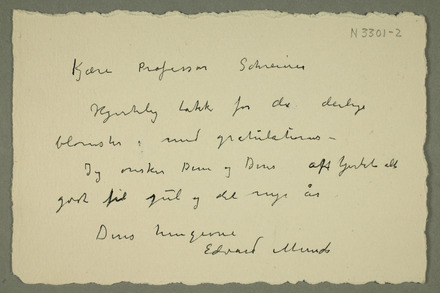 N 3301-2
Kjære Professor Schreiner
Hjertelig takk for de deilige
blomster, med gratulations –
Jeg ønsker Dem og Deres alt
godt til jul og det nye år
Deres
Edvard Munch